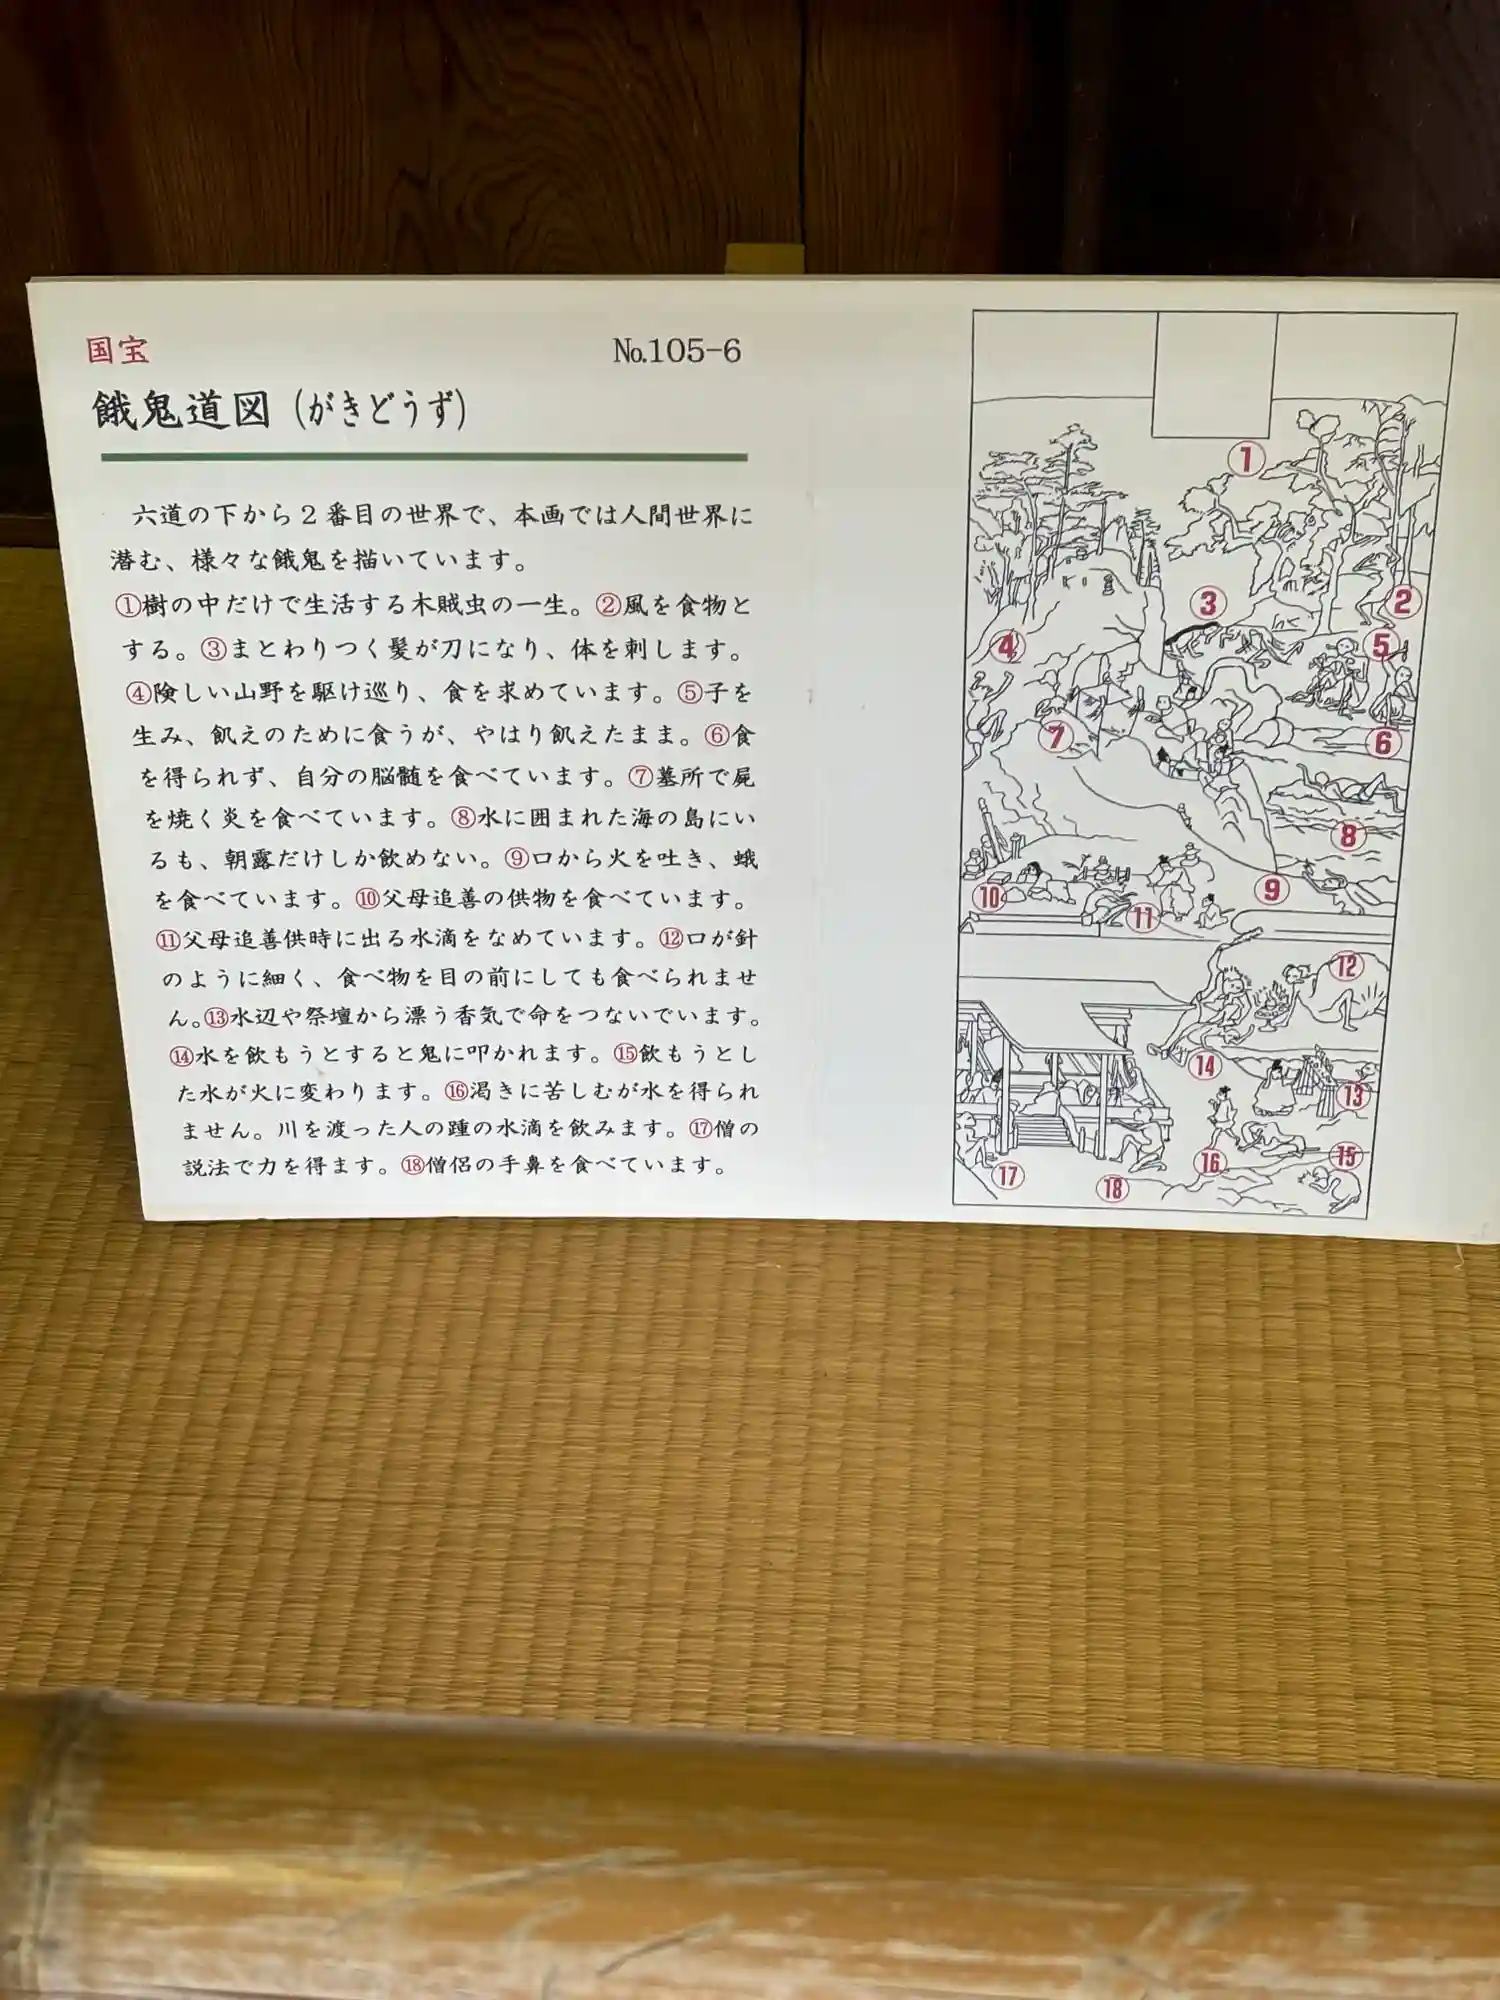 国宝
No.105-6
餓鬼道図（がきどうず）
六道の下から２番目の世界で、本画では人間世界に
潜む、様々な餓鬼を描いています。
①樹の中だけで生活する木賊虫の一生。②風を食物と
する。③まとわりつく髪が刀になり、体を刺します。
④険しい山野を駆け巡り、食を求めています。⑤子を
生み、飢えのために食うが、やはり飢えたまま。⑥食
を得られず、自分の脳髄を食べています。⑦墓所で屍
を焼く炎を食べています。⑧水に囲まれた海の島にい
るも、朝露だけしか飲めない。⑨口から火を吐き、蛾
を食べています。⑩父母追善の供物を食べています。
⑪父母追善供時に出る水滴をなめています。⑫口が針
のように細く、食べ物を目の前にしても食べられませ
ん。⑬水辺や祭壇から漂う香気で命をつないでいます。
⑭水を飲もうとすると鬼に叩かれます。⑮飲もうとし
た水が火に変わります。⑯渇きに苦しむが水を得られ
ません。川を渡った人の踵の水滴を飲みます。⑰僧の
説法で力を得ます。⑱僧侶の手鼻を食べています。
①
②
③
④
⑤
⑥
⑦
⑧
⑨
⑩
⑪
⑫
⑭
⑬
⑮
⑯
⑰
⑱